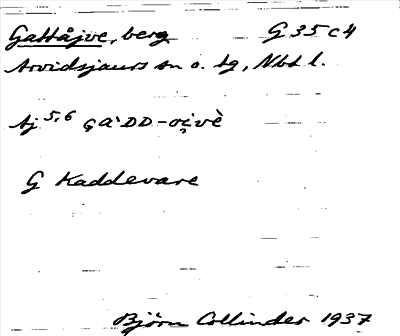 Gattåjve, berg G 35 c 4
Arvidsjaurs sn o. tg, Nbt l.
Aj 5,6 ça`DD-oi̯vè
G Kaddevare
Björn Collinder 1937